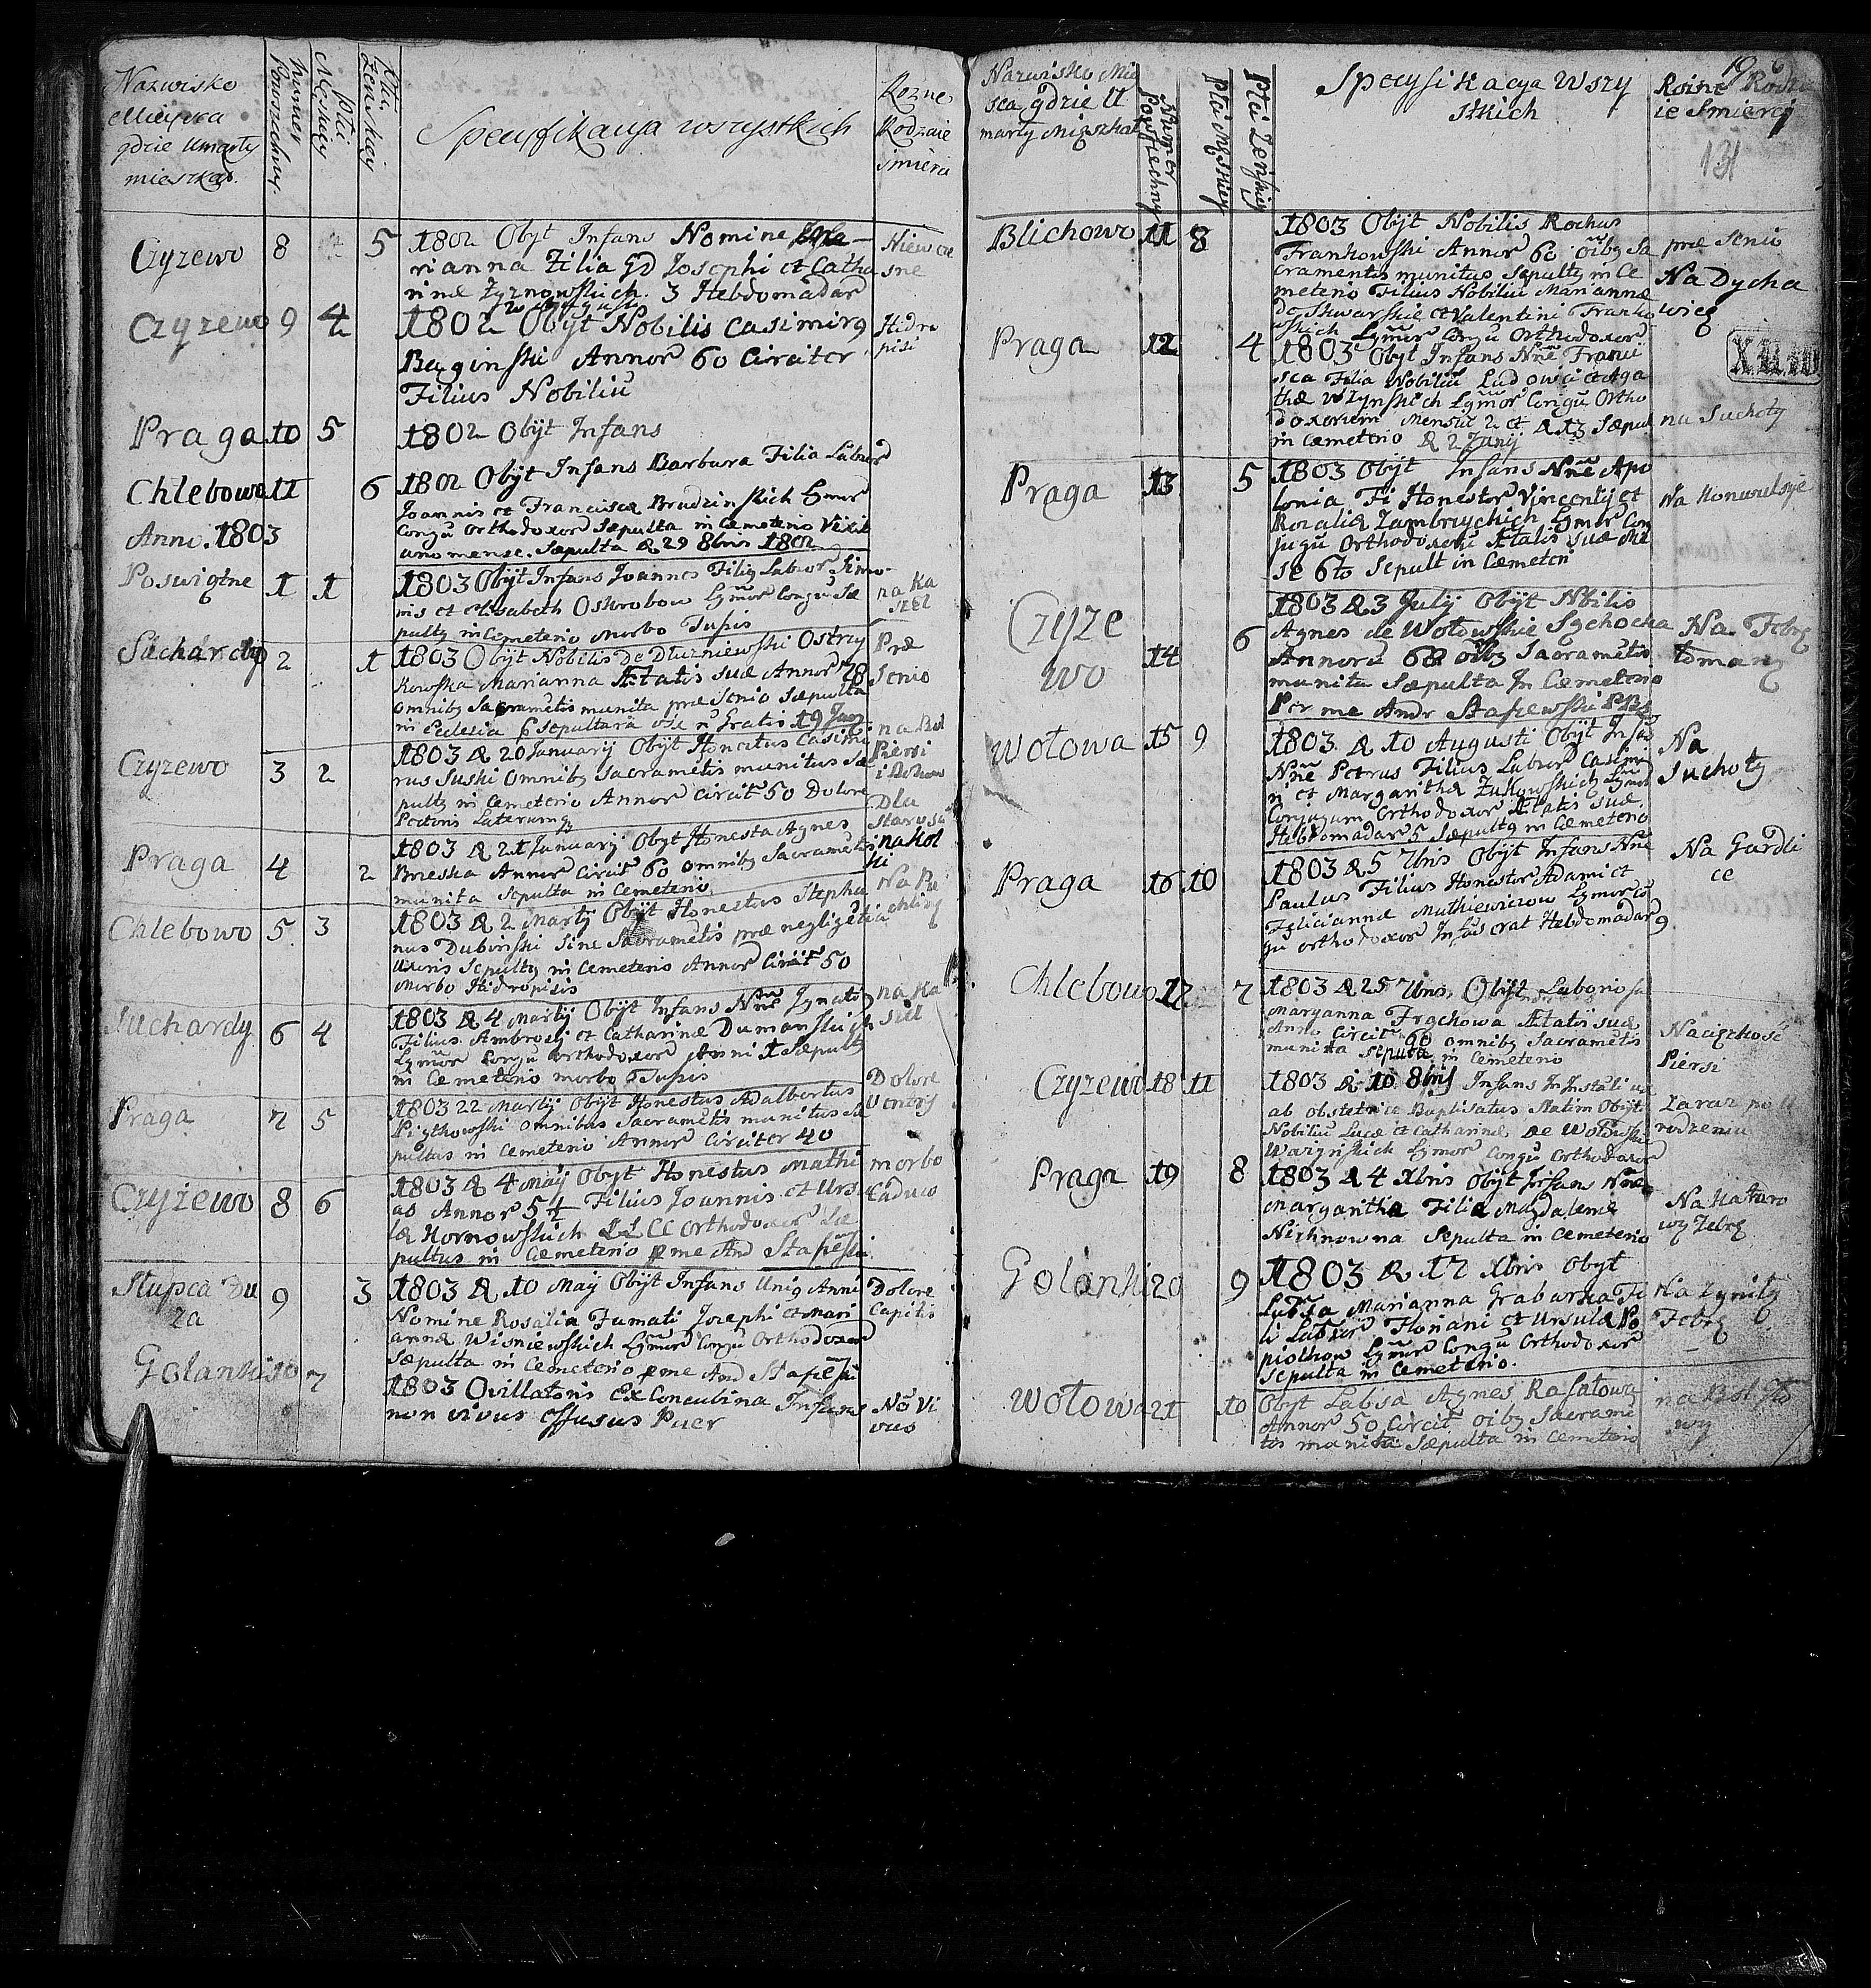 Nazwisko
Mieysca
gdzie umarły
mieszkał.
Numer
Powszechny.
Płci
Męskiey
Płci
Żeńskiey
Specyfikacya wszystkich
Rozne
Rodzaie
smierci
Czyzewo 8 5 1802 Obyt Infans Nomine Ma-
rianna Filia GD Josephi et Catha
rinæ Zyznowskich. 3 Hebdomadar
Niewcze
sne
Czyzewo 9 4 1802 Obÿt Nobilis Casimirg
Baginski Annor 60 Circiter
Filius Nobiliũ
Hidro
pisi
Praga 10 5 1802 Obÿt Infans
Chlebowo 11 6 1802 Obÿt Infans Barbara Filia Labor
Joannis et Franciscæ Brudzinskich Lgmor
Congu Orthodoxor Sæpulta in Cemeterio Vixit
uno mense. Sæpulta d 29 8bris 1802
Anno. 1803
Poswigtne 1 1 1803 Obÿt Infans Joannes Filig Labor Simo-
nis et Elisabeth Oskrobow Lgmor Congu Sæ
pultg in Cemeterio Morbo Tusis
na Ka
szel
Suchardy 2 1 1803 Obÿt Nobilis De Dłuzniewski Ostrzy
kowska Marianna Ætatis suæ Annor 78
omnibg Sacrametis munita præ senio Sæpulta
in Ecclesia
Gratis 19 Jany
Præ
Senio
Czyzewo 3 2 1803 d 20 January Obÿt Honestus Casimi
rus Suski Omnibg Sacrametis munitus Sæ
pultg in Cemeterio Annor Circit 50 Dolore
Pectoris Laterumg
na Bol
Piersi
Praga 4 2 1803 d 21 January Obyt Honesta Agnes
Brieska Annor Circit 60 omnibg Sacrameti
munita Sepulta in Cemeterio
Dla
nakol
ki
Chlebowo 5 3 1803 d 2 Martÿ Obÿt Honestus Stepha
nus Dubinski Sine Sacrametis præ negligetia
Uxoris Sepultg in Cemeterio Annor Circit 50
Morbo Hidropisis
Na Pu
chling
Suchardy 6 4 1803 d 4 Martÿ Obÿt Infans Nne Ignatig
Filius Ambrosÿ et Catharinæ Dumanskich
Lgmor Congu Orthodoxor Anni 1 Sæpultg
in Cemeterio morbo Tusis
na Ka
siel
Praga 7 5 1803 22 Martÿ Obÿt Honestus Adalbertus
Pigtkowski Omnibus Sacrametis munitus Sæ
pultus in Cemeterio Annor Circiter 40
Dolore
Ventris
Czyżewo 8 6 1803 d 4 May Obyt Honestus Mathi
as Annor 5½ Filius Joannis et Ursu
læ Kornowskich LL CC Orthodoxor Sæ
pultus in Cæmeterio p me And Stapeski
morbo
Caduco
Słupca Du
za 9 3 1803 d 10 May Obÿt Infans Unig Anni
Nomine Rosalia Famati Josephi et Mari
annæ Wisniewskich Lgmor Congu Orthodoxor
Sæpulta in Cemeterio p me And Stapeski
Dolore
Capitis
Golanki 10 7 1803 Ovillatoris Ex Concubina Infans
non vivus effusus Puer
Nõ Vi
vus
Nazwisko Mie
sca gdzie U
marły Migszkał
Numer
Powszechny
Płci Męskiey
Płci Zenskiey
Specyfikacya Wszy
stkich
Rożne Rodza
ie Smierci
19
131
Blichowo 11 8 1803 Obÿt Nobilis Rochus
Frankowski Annor 60 oibg Sa
cramentis munitus Sepultg in Ce
meterio Filius Nobiliu Mariannæ
de Skwarskie et Valentini Franko
wskich Lgmor Congu Orthodoxor
præ Senio
Na Dycha
wicg
Praga 12 4 1803 Obyt Infans Nne Franci
sca Filia Nobiliũ Ludovici et Aga
thæ Wolynskich Lgmor Congu Ortho
doxorum Mensiu 2 et d 13 Sæpul
in Cæmeterio d 2 Junÿ
na Suchoty
XIIID
Praga 13 5 1803 Obÿt Infans Nne Apo
lonia Fi Honestor Vincentÿ et
Rozaliæ Zambrzychich Lgmor Con
jugu Orthodoxoru Ætatis suæ Me
se 6to Sepult in Cæmeteri
Na Konwulsye
Czyze
wo 14 6 1803 d 3 Julÿ Obÿt Nbilis
Agnes de Wołowskie Sgchocka
Annoru 68 oibg Sacrametis
munita Sæpulta In Cæmeterio
Per me Andr Stapewski
Na Febrg
tomang
Wołowa 15 9 1803 d 10 Augusti Obÿt Infas
Nne Petrus Filius Labor Casimi
ri et Margarithæ Zukowskich Lgmor
Conjugum Orthodoxor Ætatis suæ
Hebdomadar 5 Sæpultg in Cæmeterio
Na
Suchoty
Praga 16 10 1803 d 5 7bris Obÿt Infans Nne
Paulus Filius Honestor Adami et
Feliciannæ Mathiewiczow Lgmor Co
gu orthodoxor Infas erat Hebdomadar 9
Na Gardli
ce
Chlebowo 17 7 1803 d 25 7bris Obÿt Laboriosa
Maryanna Frgchowa Ætatis suæ
Anno Circit 60 omnibg Sacrametis
munita Sepulta in Cemeterio
Naciężkość
Piersi
Czyzewo 18 11 1803 d 10 8bris Infans
ab obstetrice Baptisatus Statim Obÿt
Nobiliũ Lucæ et Catharinæ de Wołowskie
Lgmor Congu Orthodoxor
Zaraz po U
rodzeniu
Praga 19 8 1803 d 4 Xbris Obÿt Infans Nne
Margaritha Filia Magdalenæ
Nichnowna Sepulta in Cemeterio
Na Kataro
wg Febrg
Golanki 20 9 1803 d 17 Xbris Obyt
Labsa Marianna Grabarka Fi
li Labor Floriani et Ursulæ Po
piolkow Lgmor Congu Orthodoxor
Sepulta in Cemeterio.
Na Zgniłg
Febrg
Wołowa 21 10 Obyt Labsa Agnes Rafałowa
Annor 50 Circit oibg Sacrame
tis munita Sæpulta in Cemeterio
na Bol Gło
wy